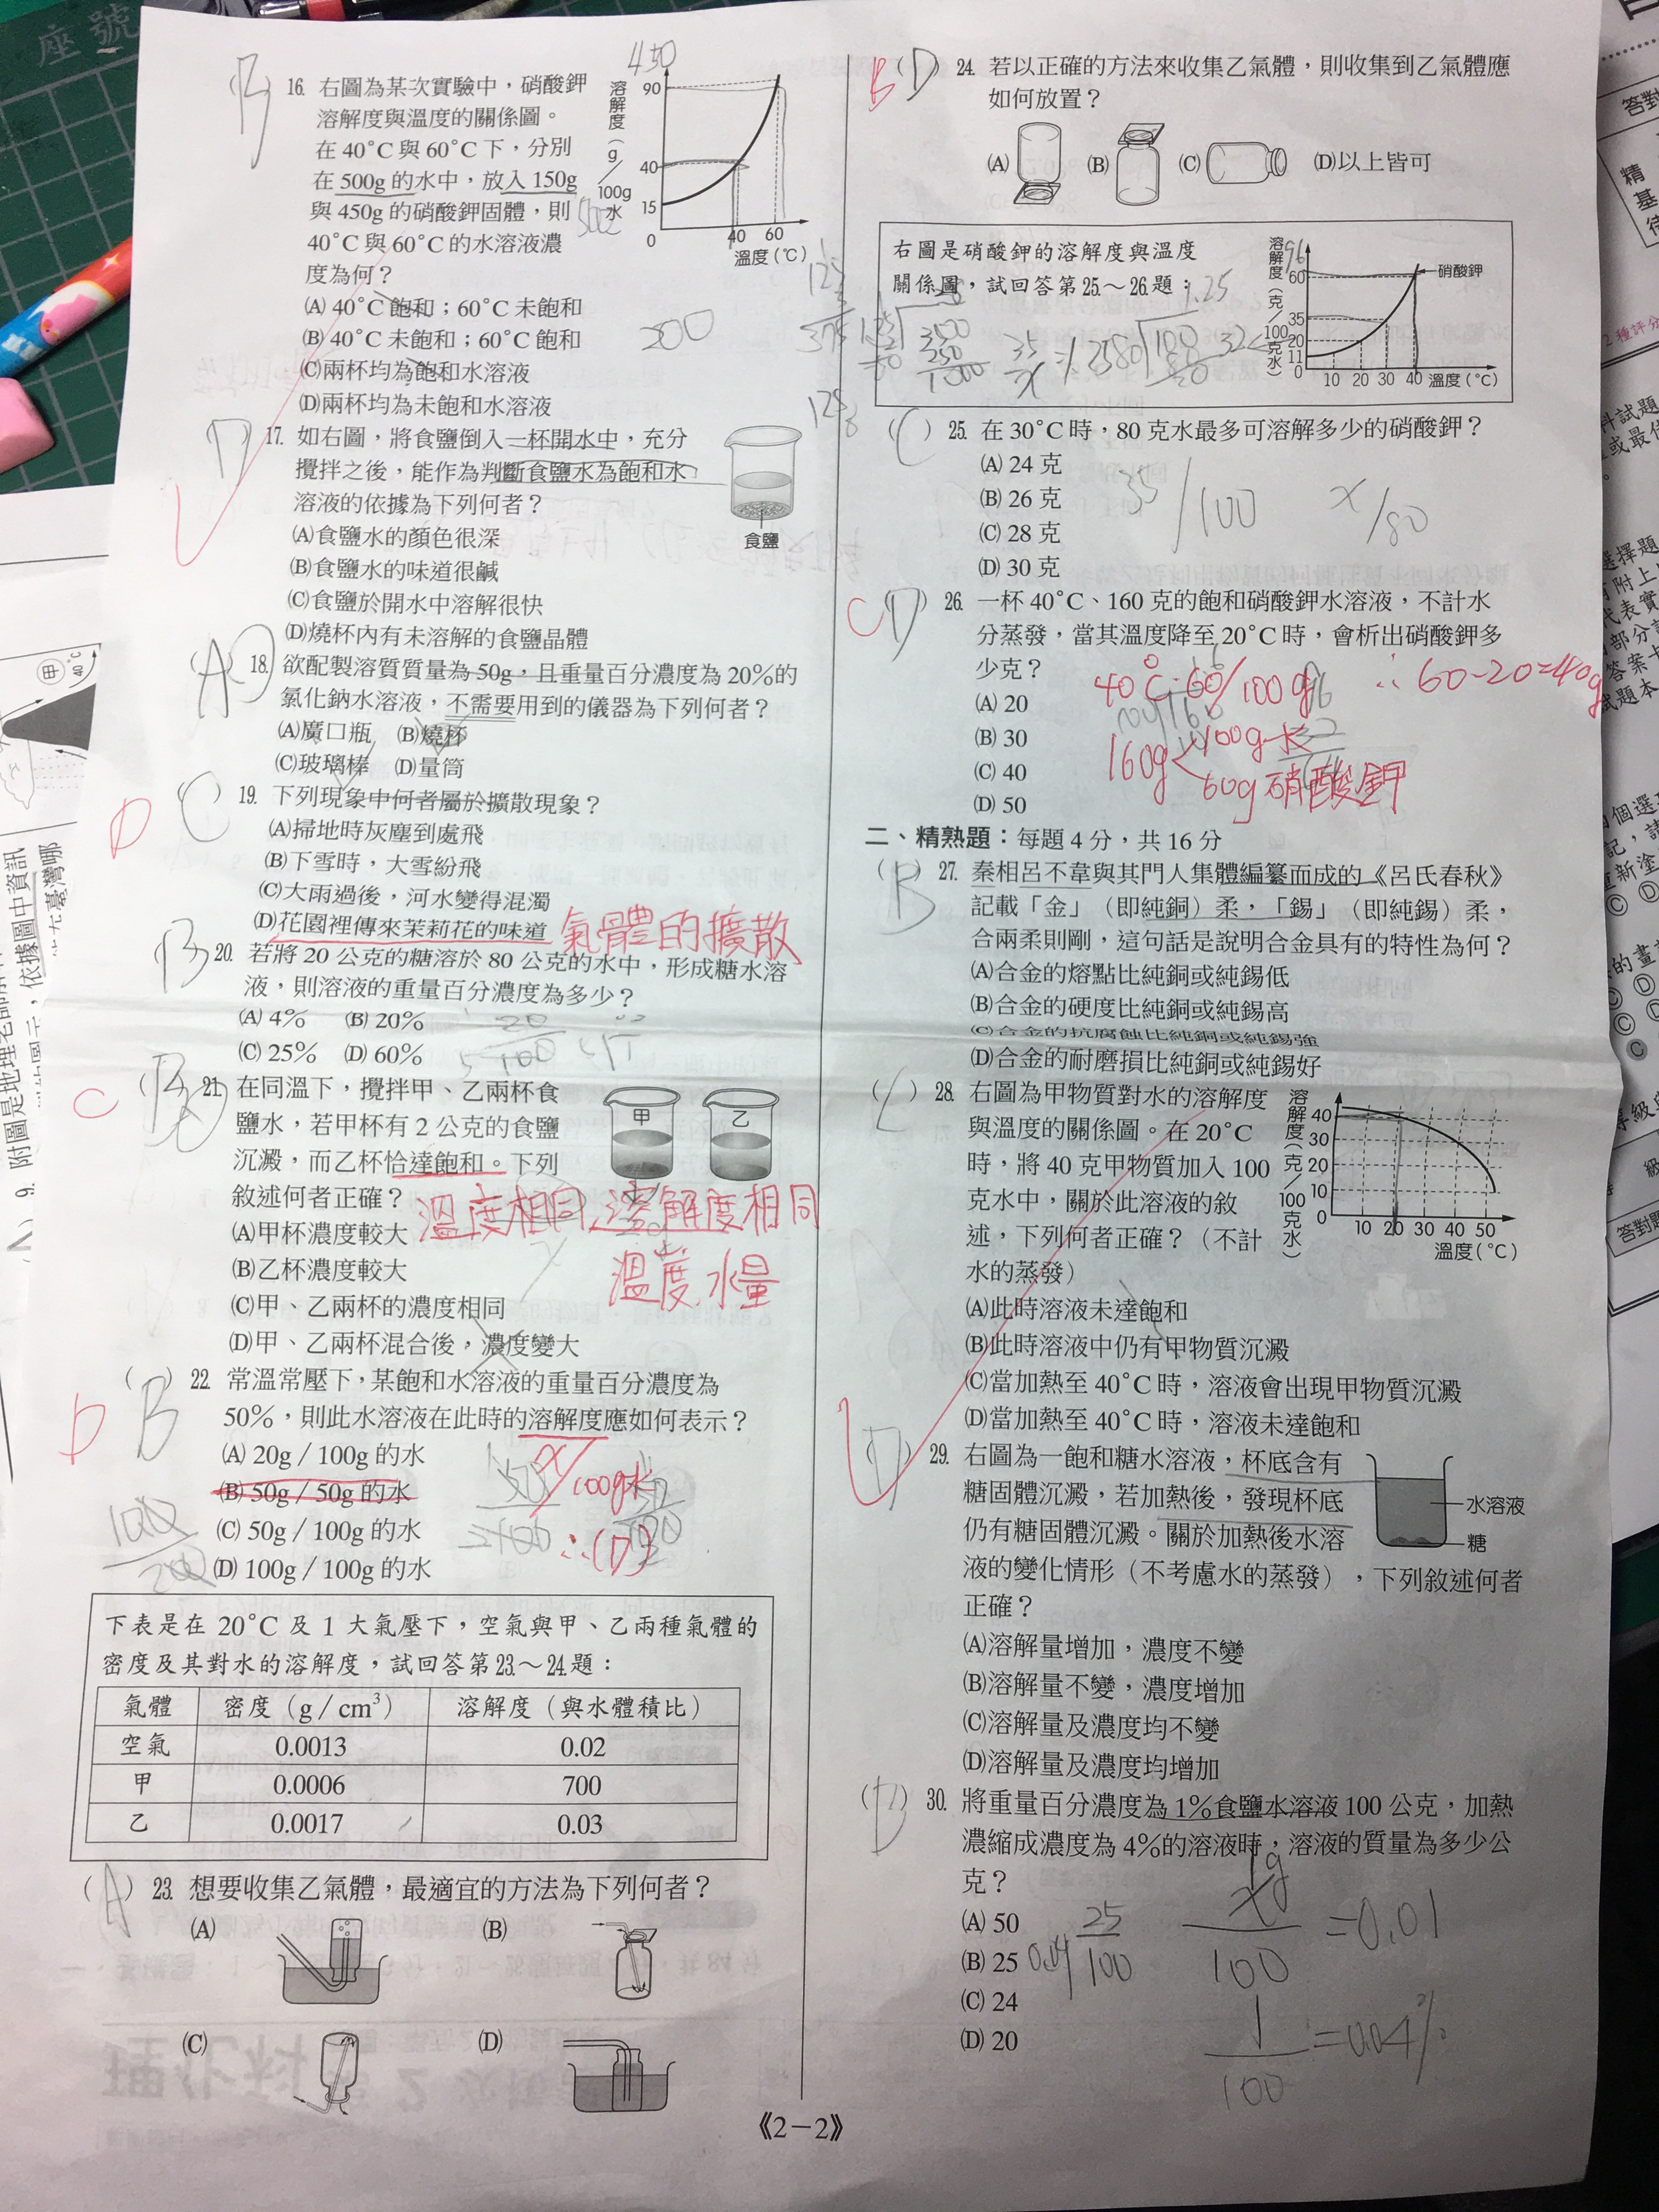 座號
16. 右圖為某次實驗中，硝酸鉀
溶解度與溫度的關係圖。
在 40°C 與 60°C 下，分別
在 500g 的水中，放入 150g
與 450g 的硝酸鉀固體，則
40°C 與 60°C 的水溶液濃
度為何？
(A) 40°C 飽和；60°C 未飽和
(B) 40°C 未飽和；60°C 飽和
(C)兩杯均為飽和水溶液
(D)兩杯均為未飽和水溶液
450
溶解度（g／100g水）
90
40
15
0
40 60
溫度（°C）
200
D
17. 如右圖，將食鹽倒入一杯開水中，充分
攪拌之後，能作為判斷食鹽水為飽和水
溶液的依據為下列何者？
(A)食鹽水的顏色很深
(B)食鹽水的味道很鹹
(C)食鹽於開水中溶解很快
(D)燒杯內有未溶解的食鹽晶體
食鹽
(A) 18. 欲配製溶質質量為 50g，且重量百分濃度為 20%的
氯化鈉水溶液，不需要用到的儀器為下列何者？
(A)廣口瓶 (B)燒杯
(C)玻璃棒 (D)量筒
D (C) 19. 下列現象中何者屬於擴散現象？
(A)掃地時灰塵到處飛
(B)下雪時，大雪紛飛
(C)大雨過後，河水變得混濁
(D)花園裡傳來茉莉花的味道 氣體的擴散
B 20. 若將 20 公克的糖溶於 80 公克的水中，形成糖水溶
液，則溶液的重量百分濃度為多少？
(A) 4% (B) 20%
(C) 25% (D) 60%
20
100
C ( ) 21. 在同溫下，攪拌甲、乙兩杯食
鹽水，若甲杯有 2 公克的食鹽
沉澱，而乙杯恰達飽和。下列
敘述何者正確？
甲 乙
溫度相同、溶解度相同
(A)甲杯濃度較大
(B)乙杯濃度較大
溫度、水量
(C)甲、乙兩杯的濃度相同
(D)甲、乙兩杯混合後，濃度變大
D ( B ) 22. 常溫常壓下，某飽和水溶液的重量百分濃度為
50%，則此水溶液在此時的溶解度應如何表示？
(A) 20g／100g 的水
(B) 50g／50g 的水
(C) 50g／100g 的水
(D) 100g／100g 的水
x/100g水
∴(D)
下表是在 20°C 及 1 大氣壓下，空氣與甲、乙兩種氣體的
密度及其對水的溶解度，試回答第23.～24.題：
氣體 密度（g／cm³） 溶解度（與水體積比）
空氣 0.0013 0.02
甲 0.0006 700
乙 0.0017 0.03
(A) 23. 想要收集乙氣體，最適宜的方法為下列何者？
(A) (B)
(C) (D)
B (D) 24. 若以正確的方法來收集乙氣體，則收集到乙氣體應
如何放置？
(A) (B) (C) (D)以上皆可
右圖是硝酸鉀的溶解度與溫度
關係圖，試回答第25.～26.題：
溶解度（克／100克水）
60
35
20
11
0
10 20 30 40 溫度（°C）
硝酸鉀
(C) 25. 在 30°C 時，80 克水最多可溶解多少的硝酸鉀？
(A) 24 克
(B) 26 克
(C) 28 克
(D) 30 克
35/100 x/80
C (D) 26. 一杯 40°C、160 克的飽和硝酸鉀水溶液，不計水
分蒸發，當其溫度降至 20°C 時，會析出硝酸鉀多
少克？
(A) 20
(B) 30
(C) 40
(D) 50
40°C：60/100g ∴60-20=40g
160g 100g水
60g硝酸鉀
二、精熟題：每題 4 分，共 16 分
(B) 27. 秦相呂不韋與其門人集體編纂而成的《呂氏春秋》
記載「金」（即純銅）柔，「錫」（即純錫）柔，
合兩柔則剛，這句話是說明合金具有的特性為何？
(A)合金的熔點比純銅或純錫低
(B)合金的硬度比純銅或純錫高
(C)合金的抗腐蝕比純銅或純錫強
(D)合金的耐磨損比純銅或純錫好
(C) 28. 右圖為甲物質對水的溶解度
與溫度的關係圖。在 20°C
時，將 40 克甲物質加入 100
克水中，關於此溶液的敘
述，下列何者正確？（不計
水的蒸發）
(A)此時溶液未達飽和
(B)此時溶液中仍有甲物質沉澱
(C)當加熱至 40°C 時，溶液會出現甲物質沉澱
(D)當加熱至 40°C 時，溶液未達飽和
溶解度（克／100克水）
40
30
20
10
0
10 20 30 40 50
溫度（°C）
(D) 29. 右圖為一飽和糖水溶液，杯底含有
糖固體沉澱，若加熱後，發現杯底
仍有糖固體沉澱。關於加熱後水溶
液的變化情形（不考慮水的蒸發），下列敘述何者
正確？
(A)溶解量增加，濃度不變
(B)溶解量不變，濃度增加
(C)溶解量及濃度均不變
(D)溶解量及濃度均增加
水溶液
糖
(B) 30. 將重量百分濃度為 1%食鹽水溶液 100 公克，加熱
濃縮成濃度為 4%的溶液時，溶液的質量為多少公
克？
(A) 50
(B) 25
(C) 24
(D) 20
25
100
1g
100
=0.01
1
100
=0.04%
《2－2》